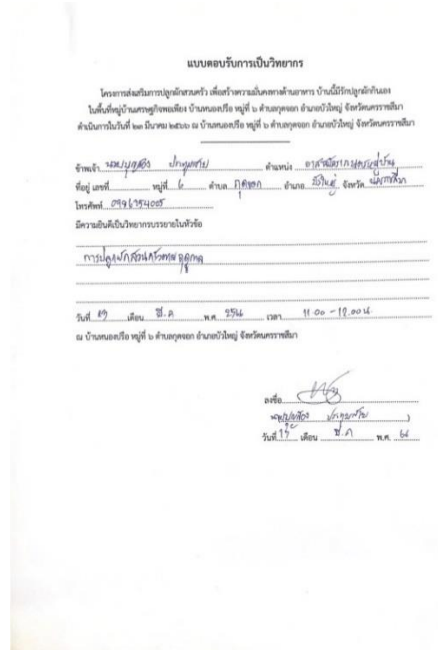 แบบตอบรับการเป็นวิทยากร
โครงการส่งเสริมการปลูกผักสวนครัว เพื่อสร้างความมั่นคงทางด้านอาหาร บ้านนี้มีรักปลูกผักกินเอง
ในพื้นที่หมู่บ้านเศรษฐกิจพอเพียง บ้านหนองปรือ หมู่ที่ ๖ ตำบลกุดจอก อำเภอบัวใหญ่ จังหวัดนครราชสีมา
ดำเนินการในวันที่ ๒๓ มีนาคม ๒๕๖๖ ณ บ้านหนองปรือ หมู่ที่ ๖ ตำบลกุดจอก อำเภอบัวใหญ่ จังหวัดนครราชสีมา
ข้าพเจ้า ตำแหน่ง
ที่อยู่ เลขที่ หมู่ที่ 6 ตำบล กุดจอก อำเภอ บัวใหญ่ จังหวัด นครราชสีมา
โทรศัพท์
มีความยินดีเป็นวิทยากรบรรยายในหัวข้อ
การปลูกผักสวนครัวตามฤดูกาล
วันที่ เดือน มี.ค พ.ศ. เวลา 11.00 - 12.00 น
ณ บ้านหนองปรือ หมู่ที่ ๖ ตำบลกุดจอก อำเภอบัวใหญ่ จังหวัดนครราชสีมา
ลงชื่อ
วันที่ เดือน มี.ค พ.ศ. 66